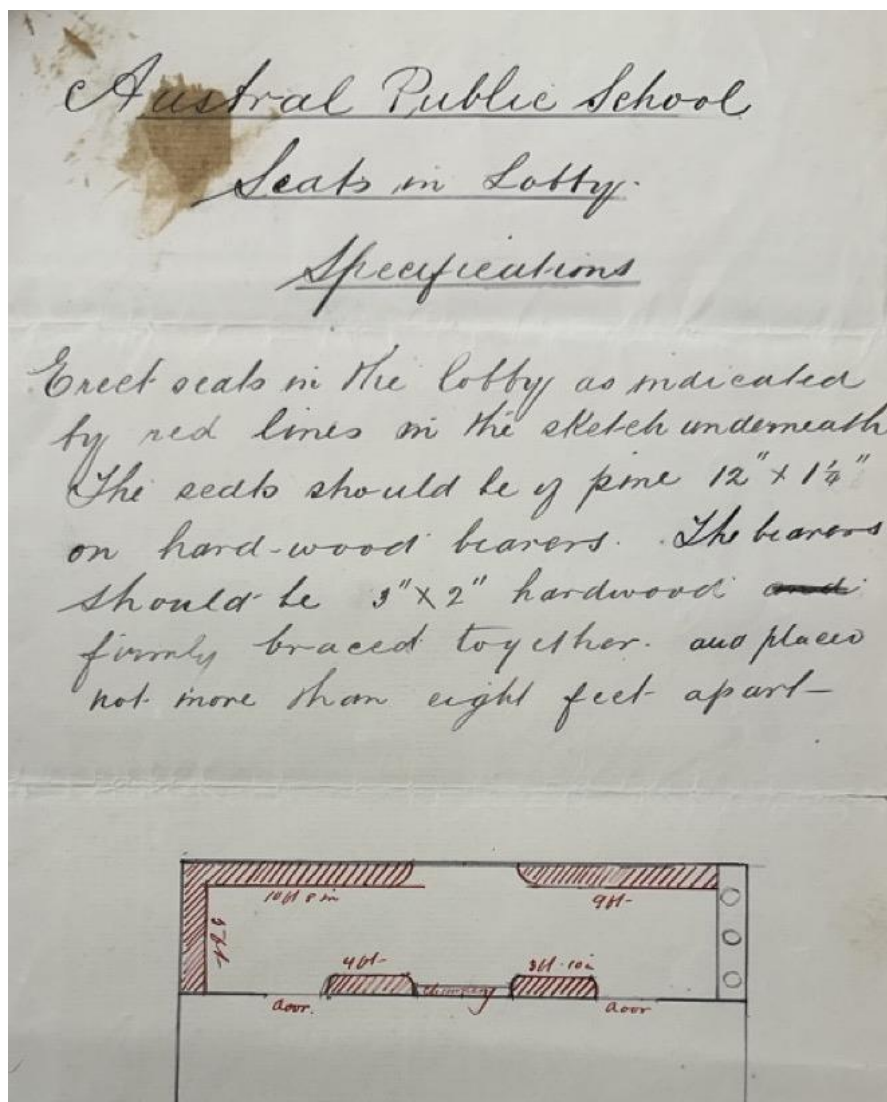 Austral Public School
Seats in Lobby.
Specifications
Erect seats in the lobby as indicated
by red lines in the sketch underneath
The seats should be of pine 12" x 1¼"
on hard-wood bearers. The bearers
should be 3" x 2" hardwood
firmly braced together. and placed
not more than eight feet apart—
10ft 8 in
9ft-
4ft-
3ft-10in
chimney
door.
door